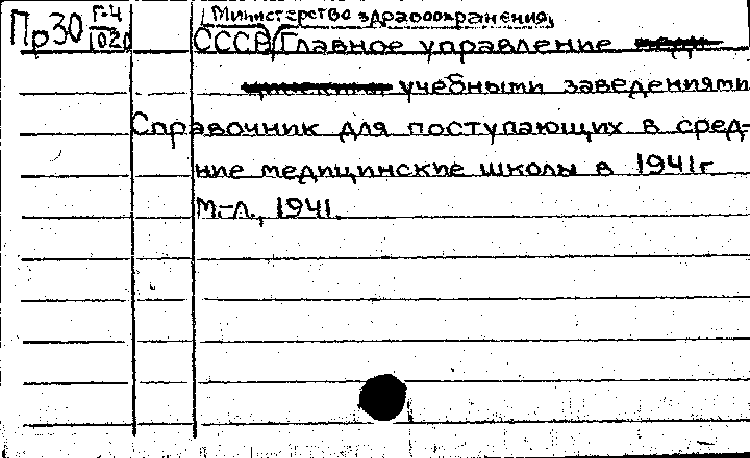 Пр30 Г-4 1020
Министерство здравоохранения,
СССР, Главное управление
учебными заведениями
Справочник для поступающих в сред-
ние медицинские школы в 1941г
М.-Л., 1941.